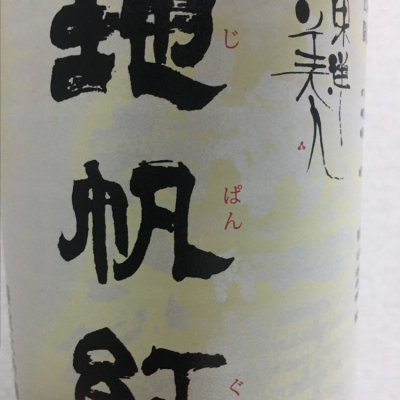 東洋美人
地帆紅
じ
ぱん
ぐ